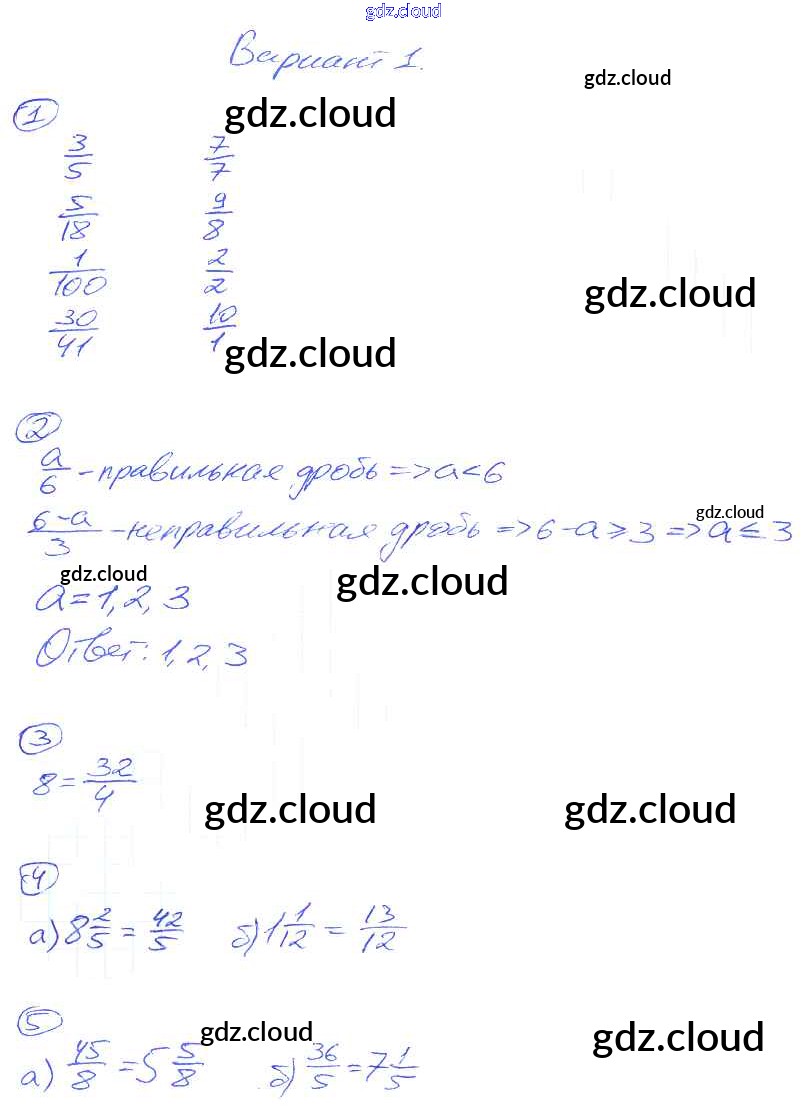 gdz.cloud
Вариант 1.
gdz.cloud
① gdz.cloud
3/5 7/7
5/18 9/8
1/100 2/2
gdz.cloud
30/41 10/1
gdz.cloud
②
a/6 - правильная дробь => a < 6
gdz.cloud
6-a/3 - неправильная дробь => 6 - a ≥ 3 => a ≤ 3
gdz.cloud gdz.cloud
a = 1, 2, 3
Ответ: 1, 2, 3
③
8 = 32/4
gdz.cloud gdz.cloud
④
а) 8 2/5 = 42/5 б) 1 1/12 = 13/12
⑤ gdz.cloud gdz.cloud
а) 45/8 = 5 5/8 б) 36/5 = 7 1/5